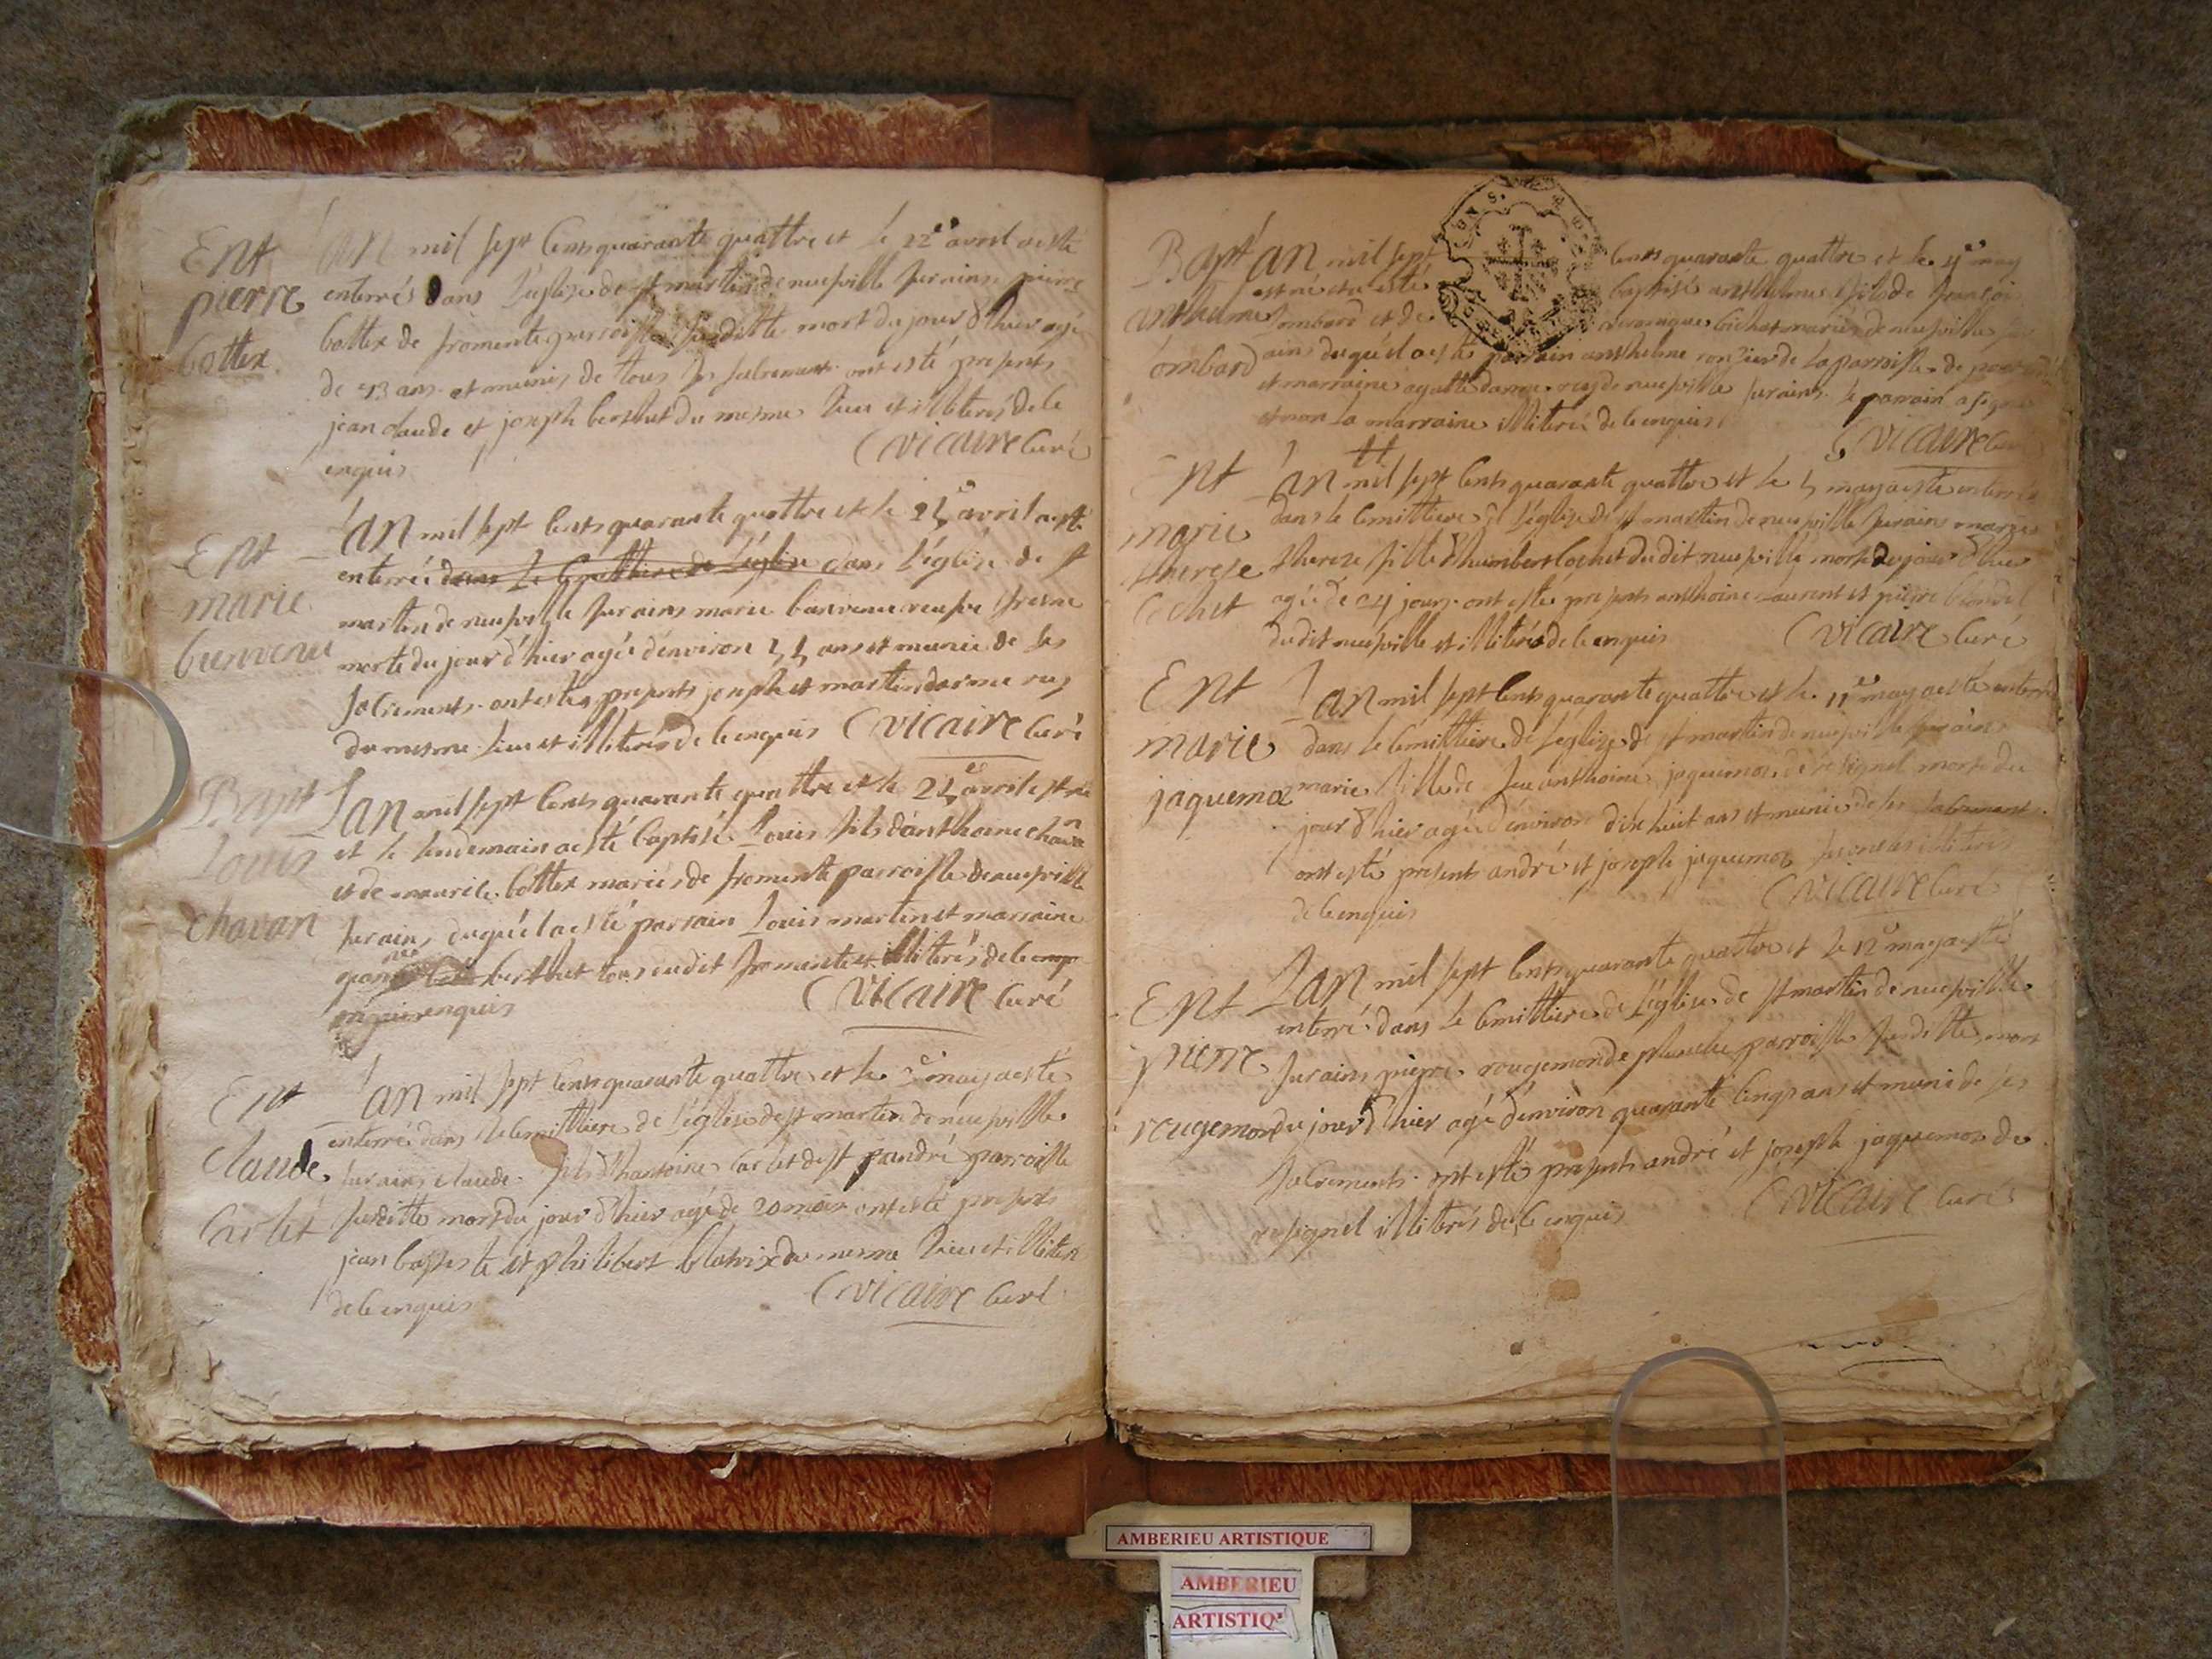 Ent
pierre
bottex
L'an mil sept cents quarante quattre et le 22e avril a esté
enterrés dans l'eglise de st martin de neufville sur ains pierre
bottex de fromente parroisse susditte mort du jour d'hier agé
de 43 ans et munis de tous ses sacrements ont esté presents
jean claude et joseph berthet du mesme lieu et illiterés de ce
enquis
C Vicaire Curé
Ent
marie
bienvenu
L'an mil sept cents quarante quattre et le avril a esté
enterrée dans le cemittiere de l'eglise dans l'eglise de st
martin de neufville sur ains marie bienvenue veufve
morte du jour d'hier agée d'environ ans et munie de ses
sacrements ont estés presents joseph et martin darme rey
du mesme lieu et illiterés de ce enquis C Vicaire Curé
Bapt
Louis
chavan
L'an mil sept cents quarante quattre et le avril est né
et le lendemain a esté baptisé Louis fils d'anthoine chavan
et de maurice bottex mariés de fromente parroisse de neufville
sur ains duquel a esté parrain Louis martin et marraine
berthet tous dudit fromente et illiterés de ce
enquis
C Vicaire Curé
Ent
Claude
Carlet
L'an mil sept cents quarante quattre et le may a esté
enterré dans le cemittiere de l'eglise de st martin de neufville
sur ains claude fils d'hantoine carlet de st andré parroisse
susditte mort du jour d'hier agé de 20 mois ont esté presents
jean baptiste et philibert blatrix du mesme lieu et illiterés
de ce enquis
C Vicaire Curé
Bapt
anthelme
Lombard
L'an mil sept cents quarante quattre et le may
est né et a esté baptisé anthelme fils de françois
Lombard et de veronique bichet mariés de neufville
ains duquel a esté parrain anthelme ronzier de la parroisse de
et marraine agatte darme rey de neufville sur ains le parrain a signé
et non la marraine illiterée de ce enquis
C Vicaire Curé
Ent
marie
therese
Cochet
L'an mil sept cents quarante quattre et le 5 may a esté enterrée
dans le cemittiere de l'eglise de st martin de neufville sur ains marie
therese fille d'humbert Cochet dudit neufville morte du jour d'hier
agée de 24 jours ont estés presents anthoine Laurent et pierre blondel
dudit neufville et illiterés de ce enquis C Vicaire Curé
Ent
marie
jaquemox
L'an mil sept cents quarante quattre et le 11e may a esté enterrée
dans le cemittiere de l'eglise de st martin de neufville sur ains
marie fille de feu anthoine jaquemox de resignel morte du
jour d'hier agée d'environ dix huit ans et munie de ses sacrements
ont esté présents andré et joseph jaquemox illiterés
de ce enquis
C Vicaire Curé
Ent
pierre
rougemon
L'an mil sept cents quarante quattre et le 12e may a esté
enterré dans le cemittiere de l'eglise de st martin de neufville
sur ains pierre rougemon de planche parroisse susditte mort
du jour d'hier agé d'environ quarante cinq ans et muni de ses
sacrements ont esté presents andré et joseph jaquemox de
resignel illiterés de ce enquis
C Vicaire Curé
AMBERIEU ARTISTIQUE
AMBERIEU
ARTISTIQ